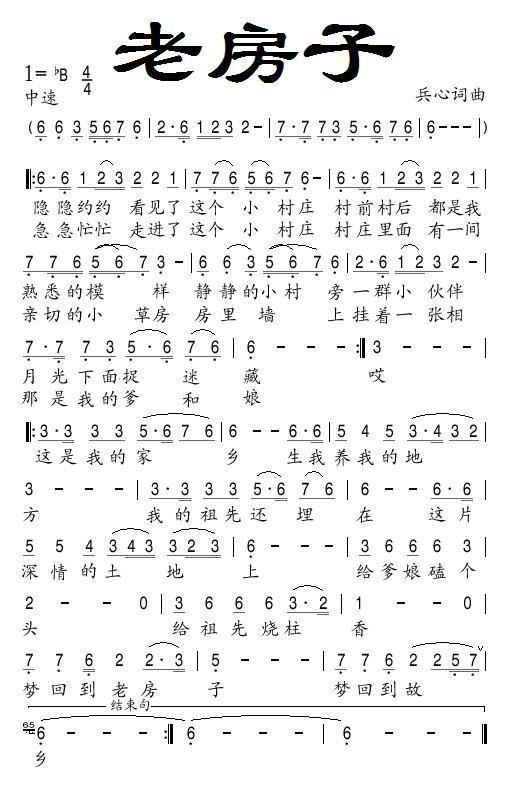 老房子
1= ♭B 4/4
中速
兵心词曲
( 6 6 3 5 6 7 6 | 2 · 6 1 2 3 2 - | 7 · 7 7 3 5 · 6 7 6 | 6 - - - )
‖: 6 · 6 1 2 3 2 2 1 | 7 7 6 5 6 7 6 - | 6 · 6 1 2 3 2 2 1 |
隐隐约约 看见了 这个 小 村庄 村前村后 都是我
急急忙忙 走进了 这个 小 村庄 村庄里面 有一间
7 7 6 5 6 7 3 - | 6 6 3 5 5 6 7 6 | 2 · 6 1 2 3 2 - |
熟悉的模 样 静静的小村 旁一群小 伙伴
亲切的小 草房 房里墙 上挂着一 张相
7 · 7 7 3 5 · 6 7 6 | 6 - - - :‖ 3 - - - |
月光下面捉 迷 藏 哎
那是我的爹 和 娘
‖: 3 · 3 3 3 5 · 6 7 6 | 6 - - 6 · 6 | 5 4 5 3 · 4 3 2 |
这是我的家 乡 生我养我的地
3 - - - | 3 · 3 3 3 5 · 6 7 6 | 6 - - 6 · 6 |
方 我的祖先还埋 在 这片
5 5 4 3 4 3 3 2 3 | 6 - - - | 3 6 6 6 3 |
深情的土 地 上 给爹娘磕个
2 - - 0 | 3 6 6 6 3 · 2 | 6 - - 0 |
头 给祖先烧柱 香
7 7 6 2 2 · 3 | 5 - - - | 7 7 6 2 2 5 7 ∨
梦回到老房 子 梦回到故
结束句
65 6 - - - :‖ 6 - - - | 6 - - - ‖
乡